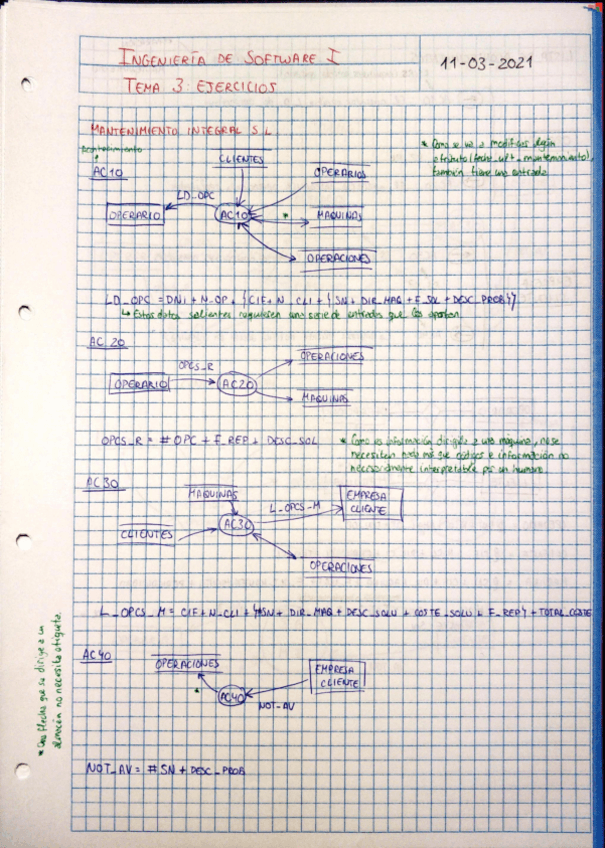 INGENIERÍA DE SOFTWARE I
TEMA 3 EJERCICIOS
11-03-2021
MANTENIMIENTO INTEGRAL S.L
Acontecimiento
* Como se va a modificar algún
atributo (fecha_ult_mantenimiento),
también tiene una entrada
AC10
CLIENTES
OPERARIOS
LD_OPC
OPERARIO
AC10
*
MAQUINAS
OPERACIONES
LD_OPC = DNI + N_OP + {CIF + N_CLI + {SN + DIR_MAQ + F_SOL + DESC_PROB}}
↳ Estos datos salientes requieren una serie de entradas que los aportan.
AC 20
OPERACIONES
OPCS_R
OPERARIO
AC20
MAQUINAS
OPCS_R = # OPC + F_REP + DESC_SOL
* Como es información dirigida a una máquina, no se
necesitan nada más que códigos e información no
necesariamente interpretable por un humano.
AC30
MAQUINAS
L_OPCS_M
EMPRESA
CLIENTE
AC30
CLIENTES
OPERACIONES
L_OPCS_M = CIF + N_CLI + {#SN + DIR_MAQ + DESC_SOLU + COSTE_SOLU + F_REP} + TOTAL_COSTE
AC40
OPERACIONES
EMPRESA
CLIENTE
*
AC40
NOT_AV
* Una flecha que se dirige a un
almacén no necesita etiqueta.
NOT_AV = # SN + DESC_PROB